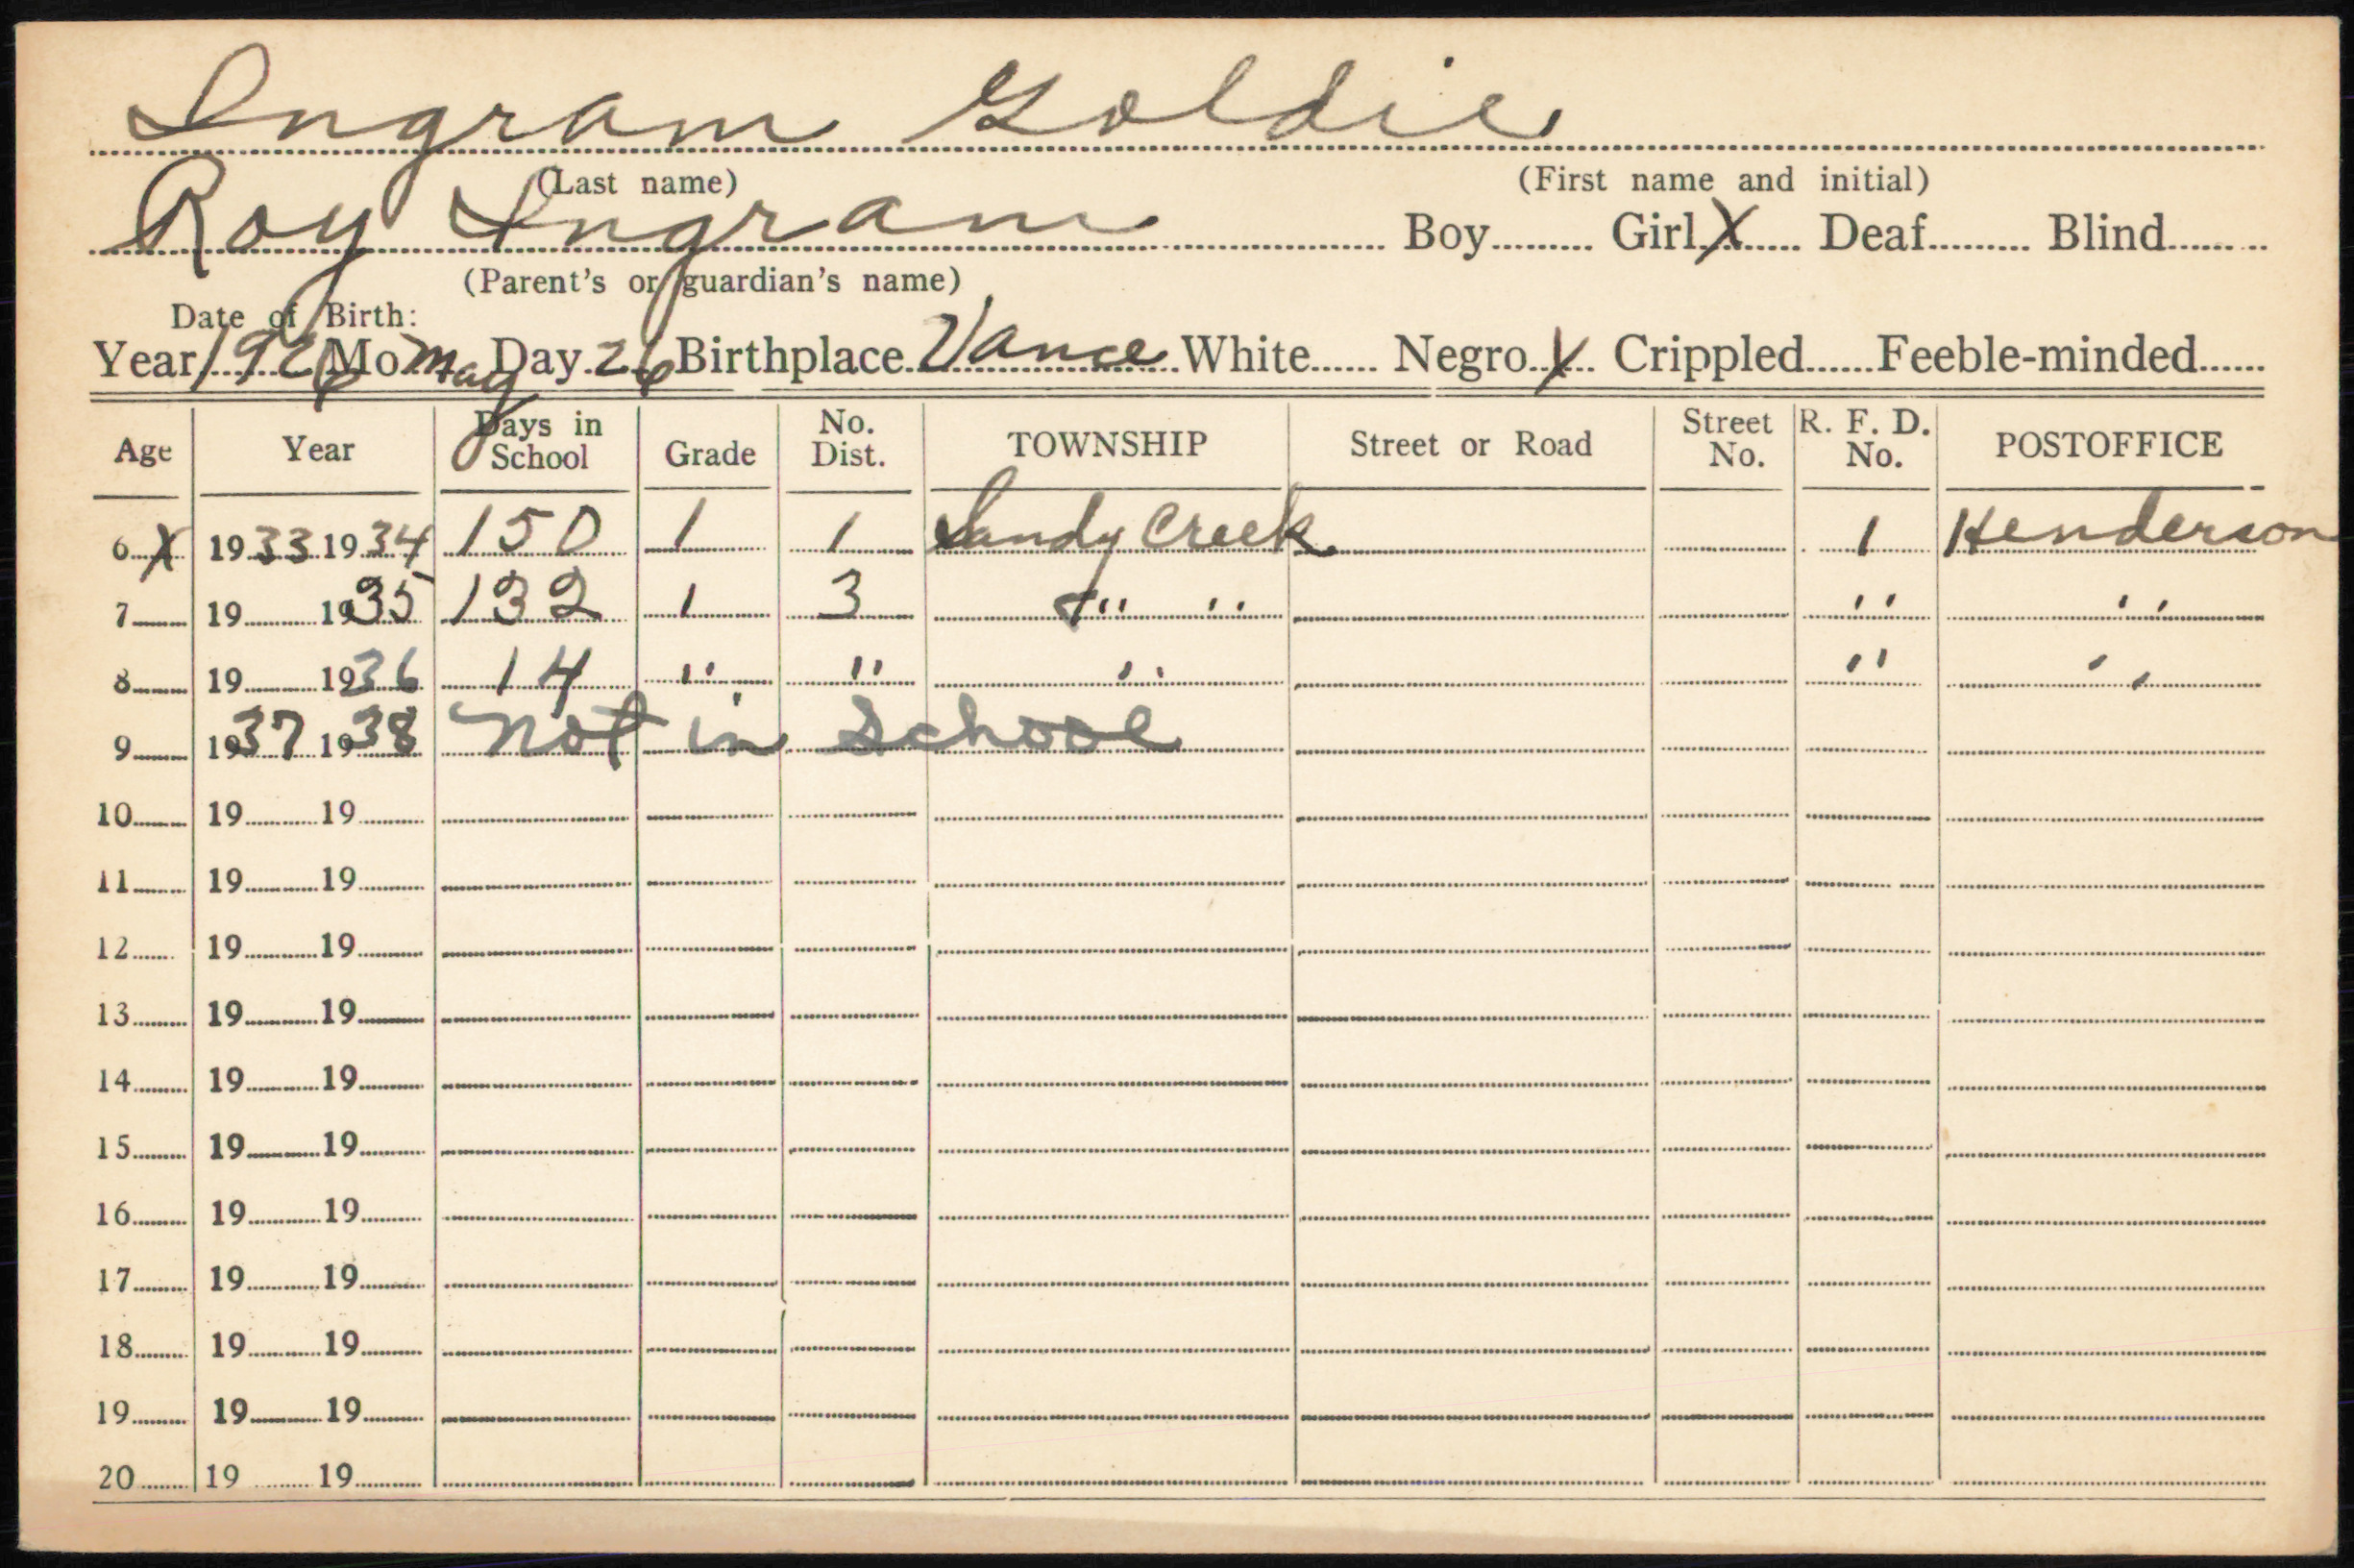 Ingram Goldie
(Last name) (First name and initial)
Roy Ingram Boy......... Girl X...... Deaf......... Blind.........
(Parent's or guardian's name)
Date of Birth:
Year 1926 Mo May Day 26 Birthplace Vance White...... Negro X... Crippled...... Feeble-minded......
Age Year Days in School Grade No. Dist. TOWNSHIP Street or Road Street No. R. F. D. No. POSTOFFICE
6 X 1933 1934 150 1 1 Sandy Creek 1 Henderson
7 19 1935 132 1 3 " " " "
8 19 1936 14 " " " " "
9 1937 1938 not in School
10 19 19
11 19 19
12 19 19
13 19 19
14 19 19
15 19 19
16 19 19
17 19 19
18 19 19
19 19 19
20 19 19